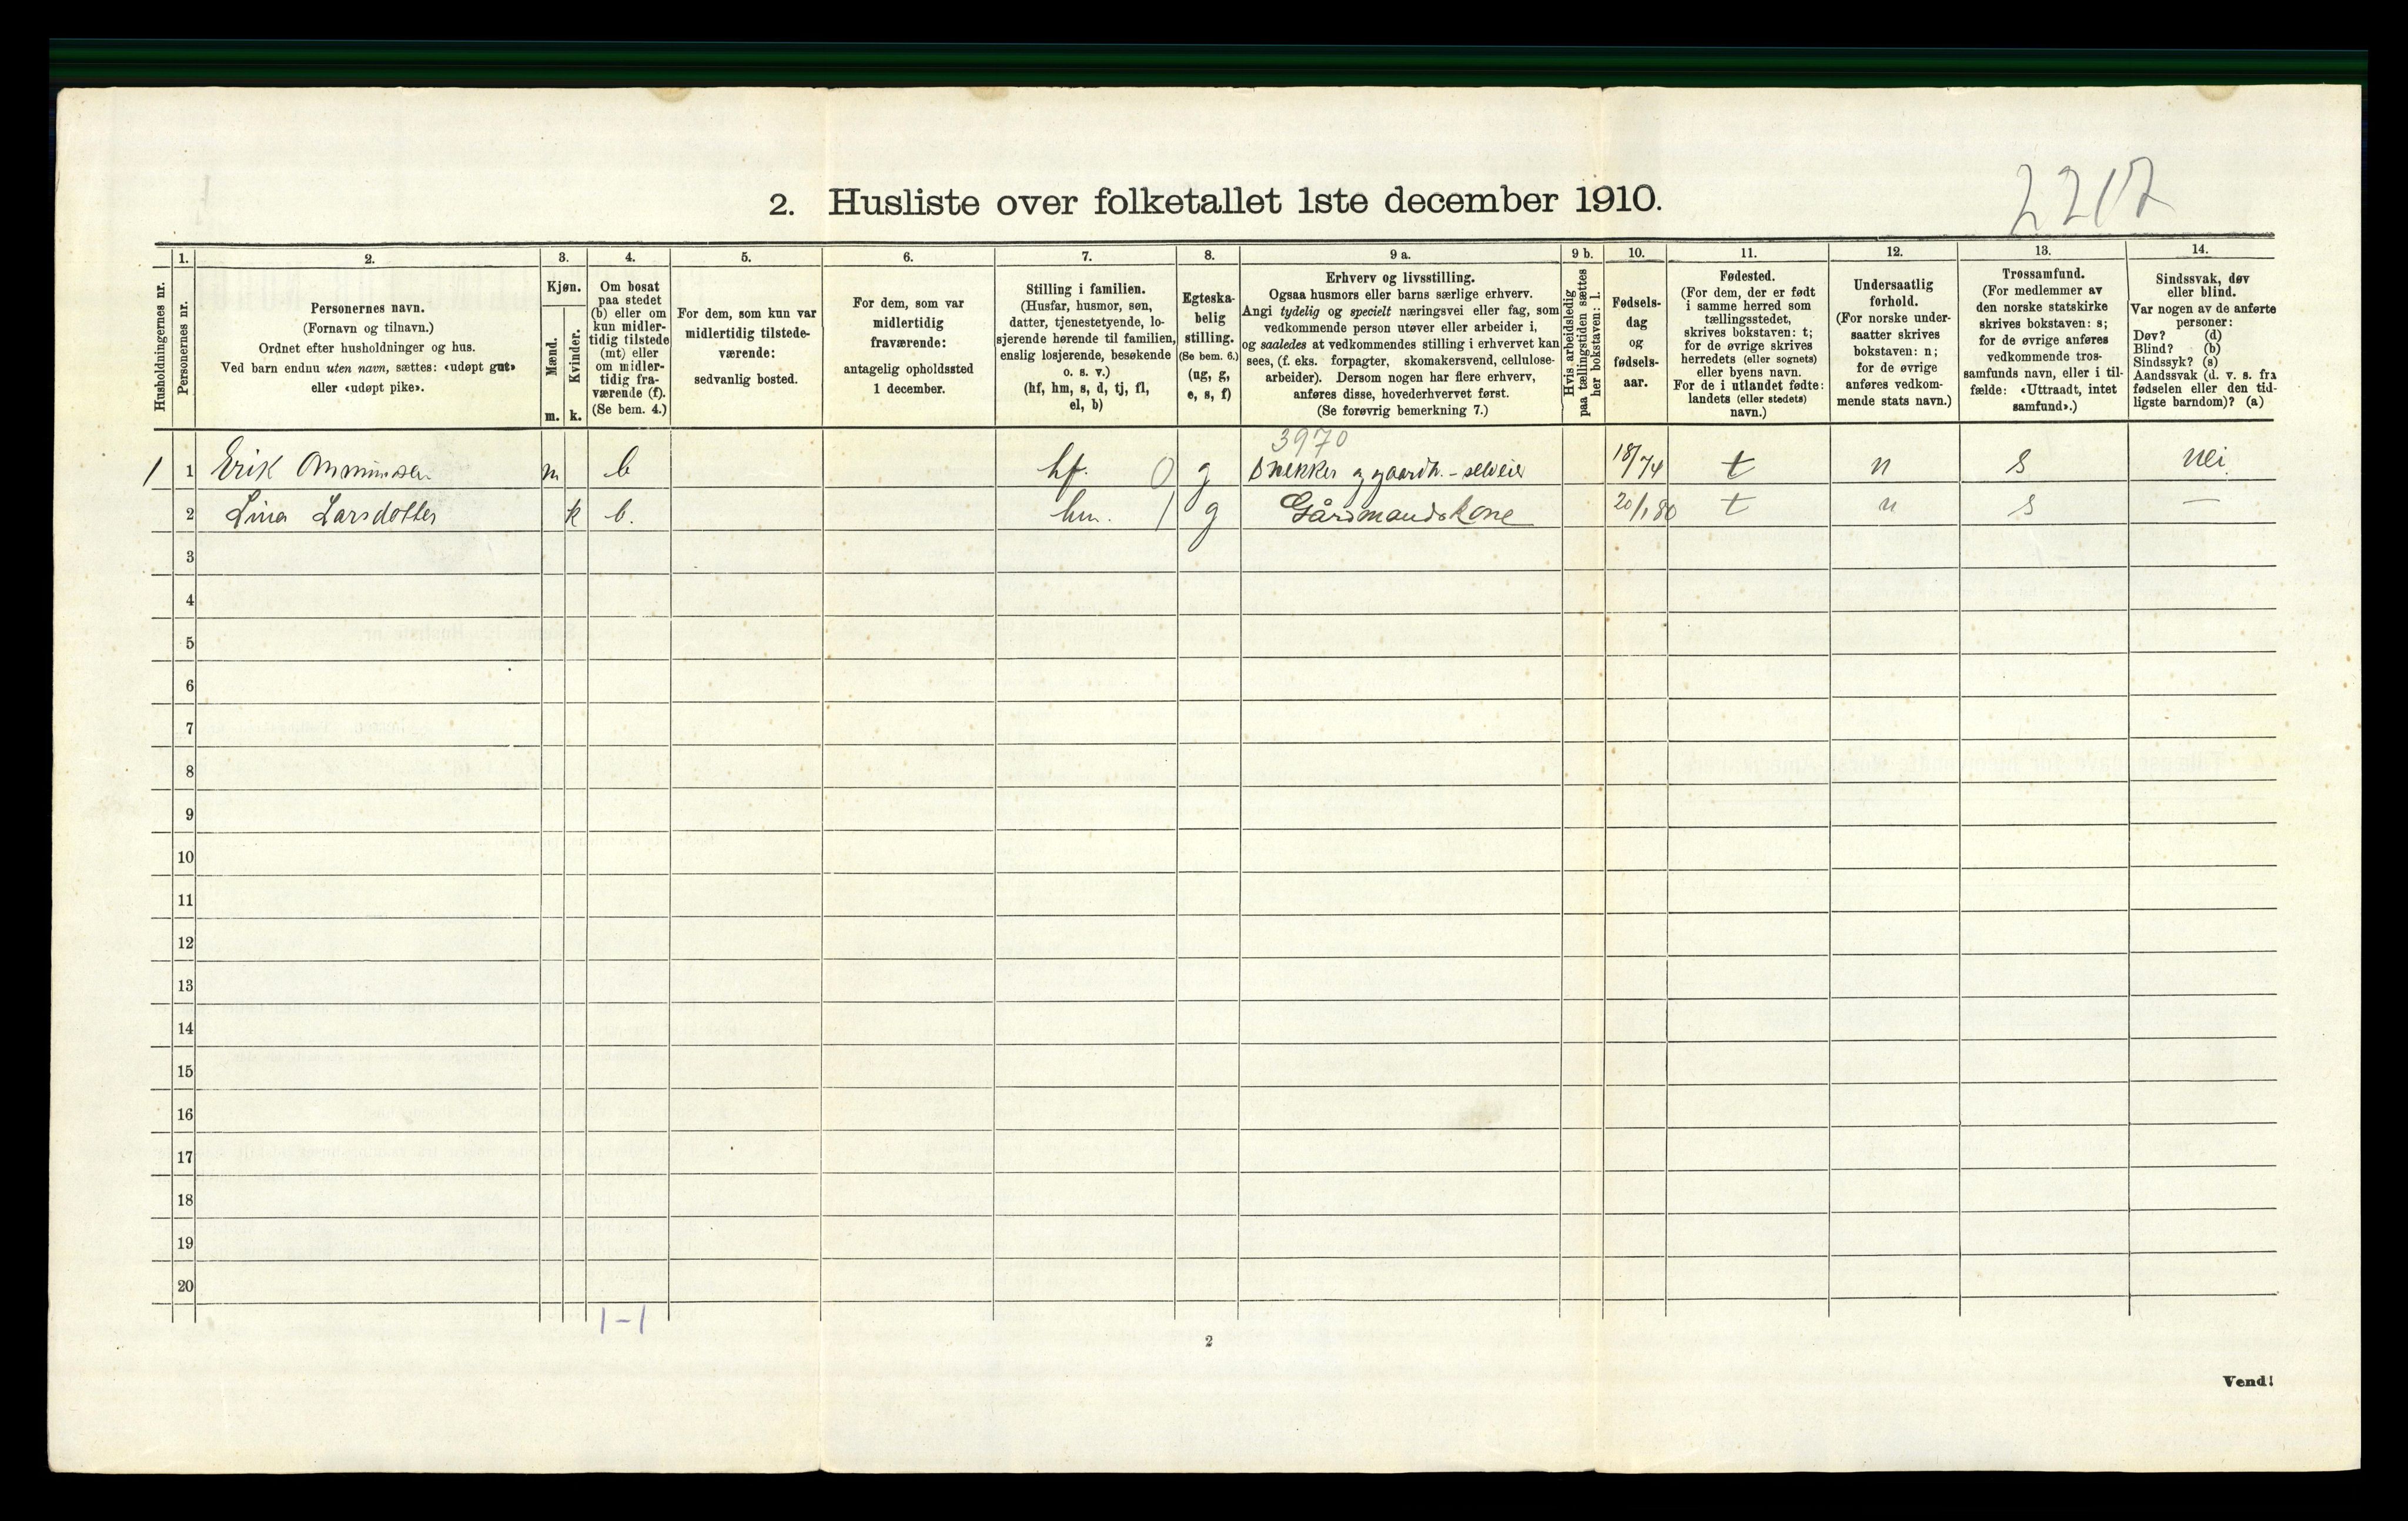 2212
2. Husliste over folketallet 1ste december 1910.
Husholdningernes nr.
1.
Personernes nr.
2.
Personernes navn.
(Fornavn og tilnavn.)
Ordnet efter husholdninger og hus.
Ved barn endnu uten navn, sættes: «udøpt gut»
eller «udøpt pike».
3.
Kjøn.
Mænd.
m.
Kvinder.
k.
4.
Om bosat
paa stedet
(b) eller om
kun midler-
tidig tilstede
(mt) eller
om midler-
tidig fra-
værende (f).
(Se bem. 4.)
5.
For dem, som kun var
midlertidig tilstede-
værende:
sedvanlig bosted.
6.
For dem, som var
midlertidig
fraværende:
antagelig opholdssted
1 december.
7.
Stilling i familien.
(Husfar, husmor, søn,
datter, tjenestetyende, lo-
sjerende hørende til familien,
enslig losjerende, besøkende
o. s. v.)
(hf, hm, s, d, tj, fl,
el, b)
8.
Egteska-
belig
stilling.
(Se bem. 6.)
(ug, g,
e, s, f)
9 a.
Erhverv og livsstilling.
Ogsaa husmors eller barns særlige erhverv.
Angi tydelig og specielt næringsvei eller fag, som
vedkommende person utøver eller arbeider i,
og saaledes at vedkommendes stilling i erhvervet kan
sees, (f. eks. forpagter, skomakersvend, cellulose-
arbeider). Dersom nogen har flere erhverv,
anføres disse, hovederhvervet først.
(Se forøvrig bemerkning 7.)
9 b.
Hvis arbeidsledig
paa tællingstiden sættes
her bokstaven: l.
10.
Fødsels-
dag
og
fødsels-
aar.
11.
Fødested.
(For dem, der er født
i samme herred som
tællingsstedet,
skrives bokstaven: t;
for de øvrige skrives
herredets (eller sognets)
eller byens navn.
For de i utlandet fødte:
landets (eller stedets)
navn.)
12.
Undersaatlig
forhold.
(For norske under-
saatter skrives
bokstaven: n;
for de øvrige
anføres vedkom-
mende stats navn.)
13.
Trossamfund.
(For medlemmer av
den norske statskirke
skrives bokstaven: s;
for de øvrige anføres
vedkommende tros-
samfunds navn, eller i til-
fælde: «Uttraadt, intet
samfund».)
14.
Sindssvak, døv
eller blind.
Var nogen av de anførte
personer:
Døv? (d)
Blind? (b)
Sindssyk? (s)
Aandssvak (d. v. s. fra
fødselen eller den tid-
ligste barndom)? (a)
3970
1 1 Erik m b hf. 0 g Snekker og gaardb. - selveier 18/74 t n s nei
2 Lina Larsdotter k b. hm. 1 g Gårdmandskone 20/1 80 t n s —
3
4
5
6
7
8
9
10
11
12
13
14
15
16
17
18
19
20
1 - 1
2
Vend!